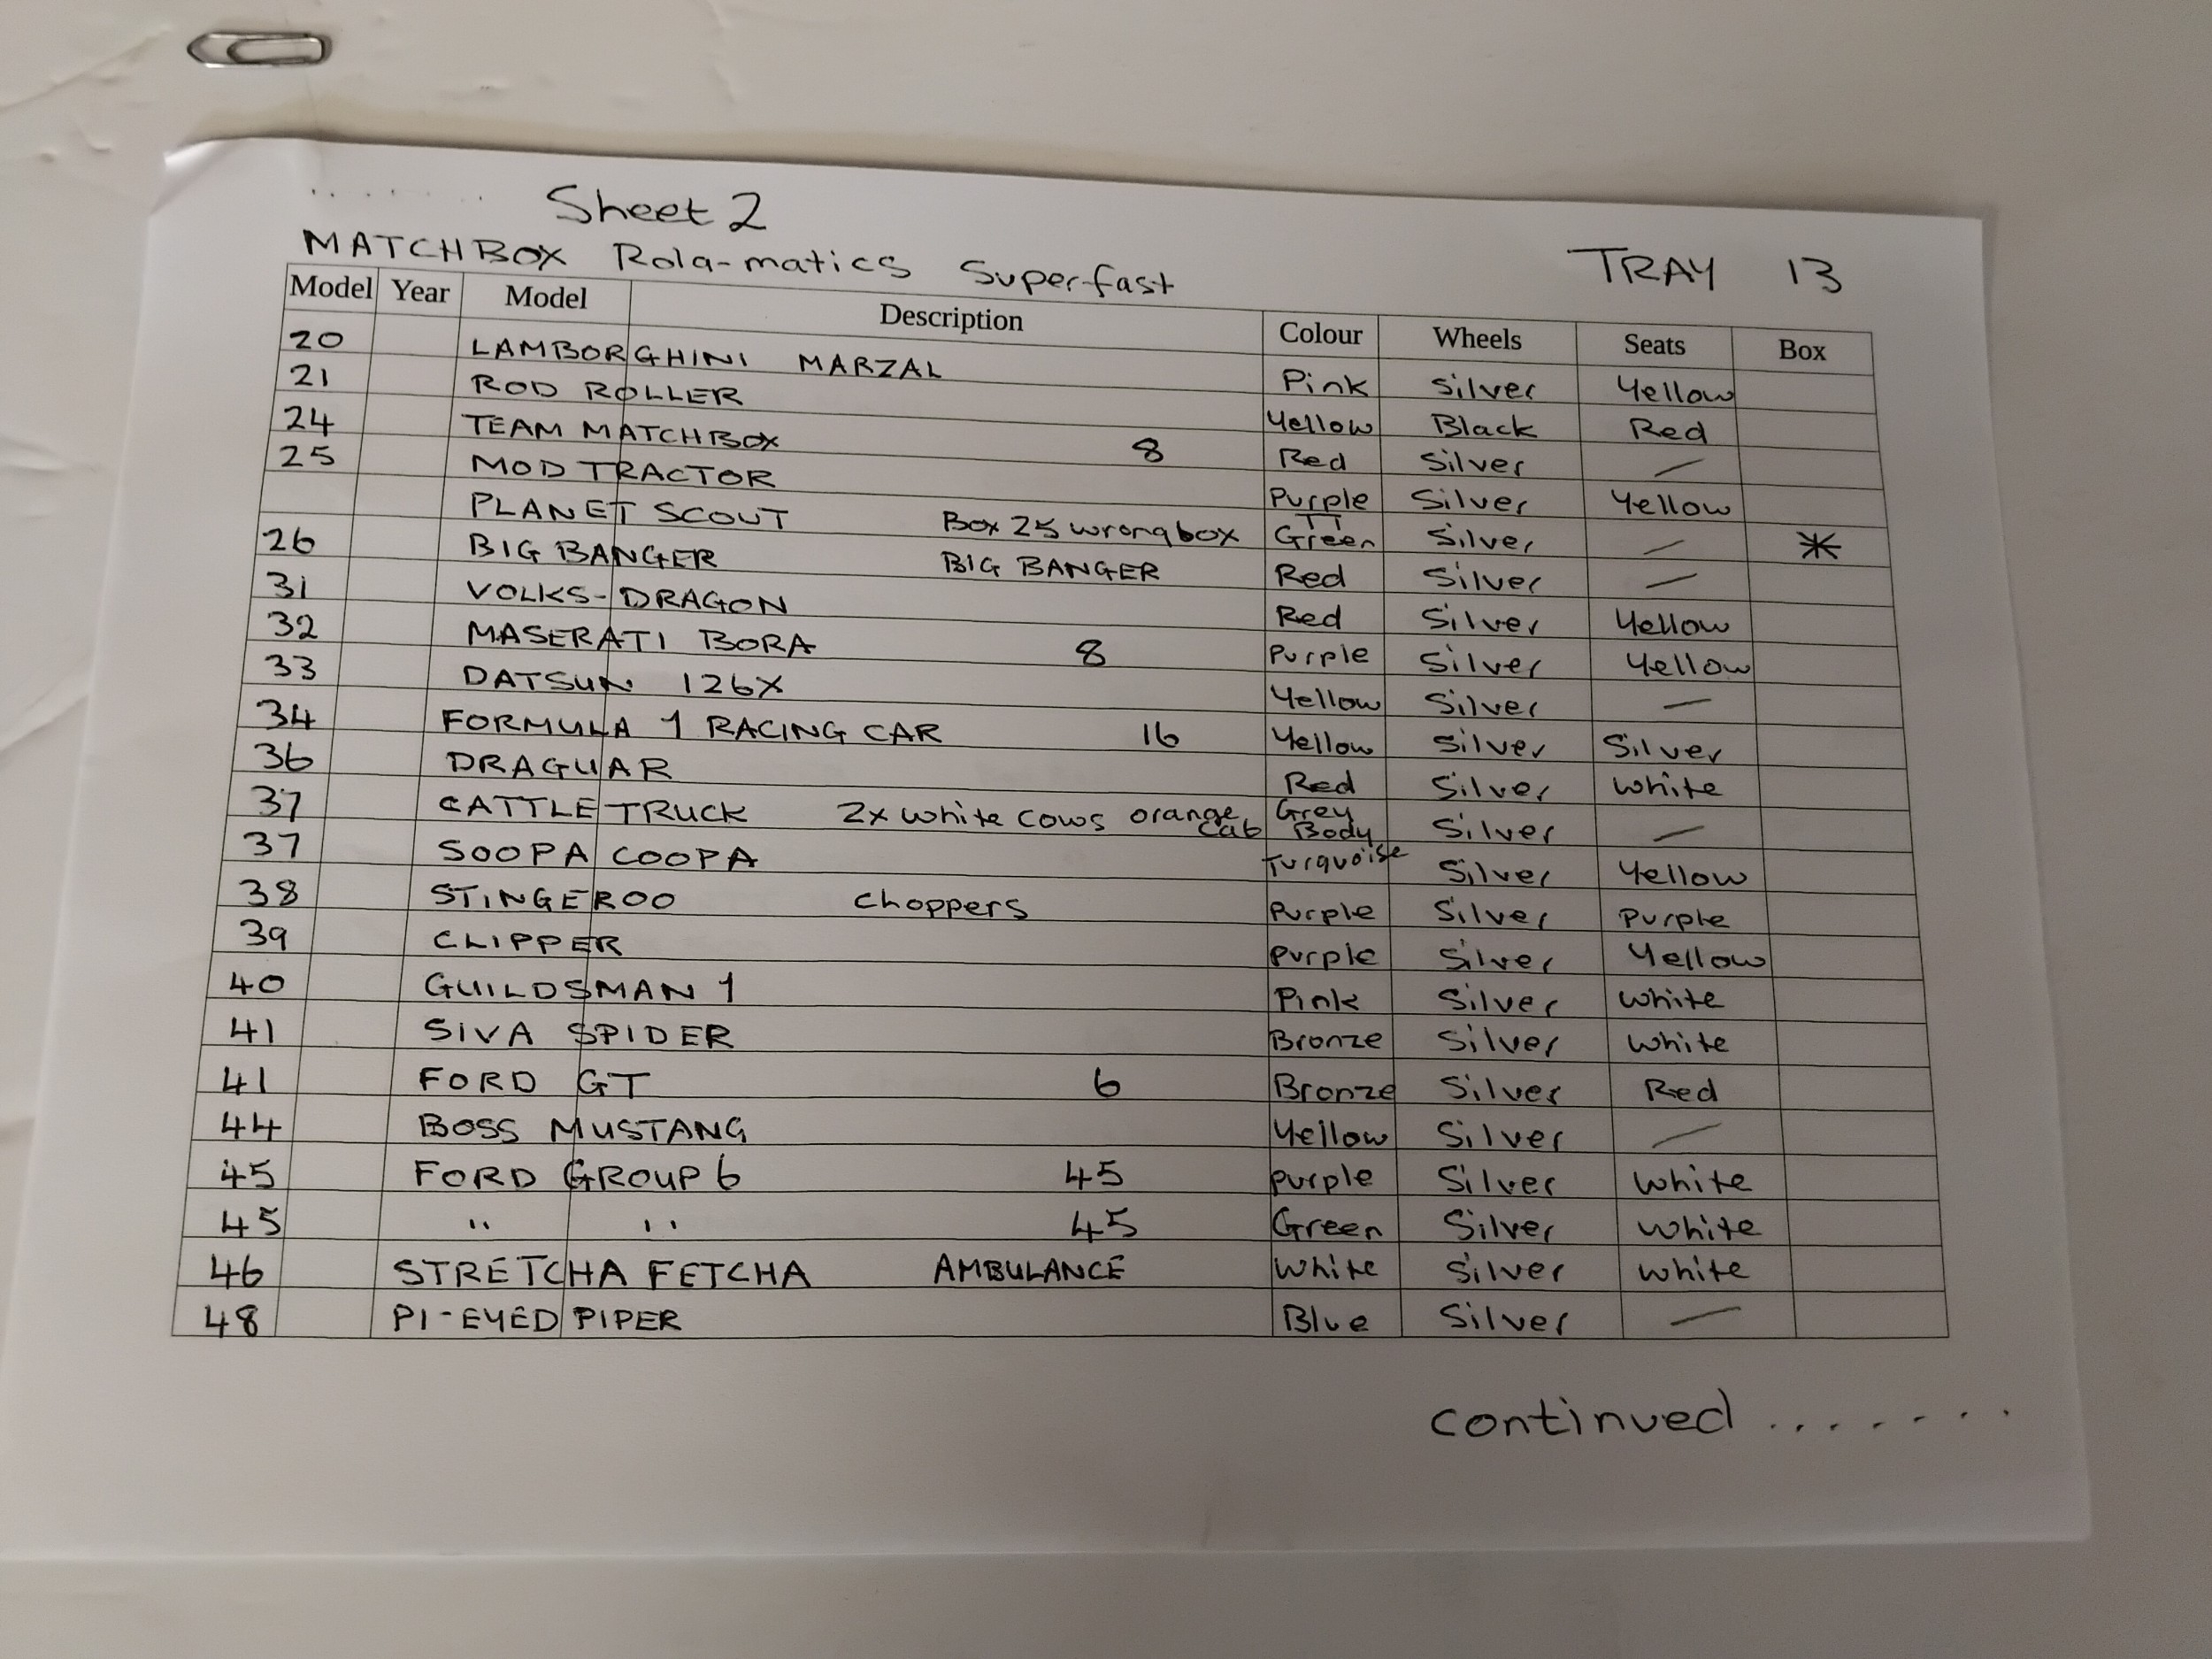 ....... Sheet 2
MATCHBOX Rola-matics Superfast TRAY 13
Model Year Model Description Colour Wheels Seats Box
20 LAMBORGHINI MARZAL Pink Silver Yellow
21 ROD ROLLER Yellow Black Red
24 TEAM MATCHBOX 8 Red Silver /
25 MOD TRACTOR Purple Silver Yellow
PLANET SCOUT Box 25 wrong box Green Silver / *
26 BIG BANGER BIG BANGER Red Silver /
31 VOLKS-DRAGON Red Silver Yellow
32 MASERATI BORA 8 Purple Silver Yellow
33 DATSUN 126X Yellow Silver /
34 FORMULA 1 RACING CAR 16 Yellow Silver Silver
36 DRAGUAR Red Silver White
37 CATTLE TRUCK 2x White Cows orange cab Grey Body Silver /
37 SOOPA COOPA Turquoise Silver Yellow
38 STINGEROO Choppers Purple Silver Purple
39 CLIPPER Purple Silver Yellow
40 GUILDSMAN 1 Pink Silver White
41 SIVA SPIDER Bronze Silver White
41 FORD GT 6 Bronze Silver Red
44 BOSS MUSTANG Yellow Silver /
45 FORD GROUP 6 45 Purple Silver White
45 " " 45 Green Silver White
46 STRETCHA FETCHA AMBULANCE White Silver White
48 PI-EYED PIPER Blue Silver /
continued .......